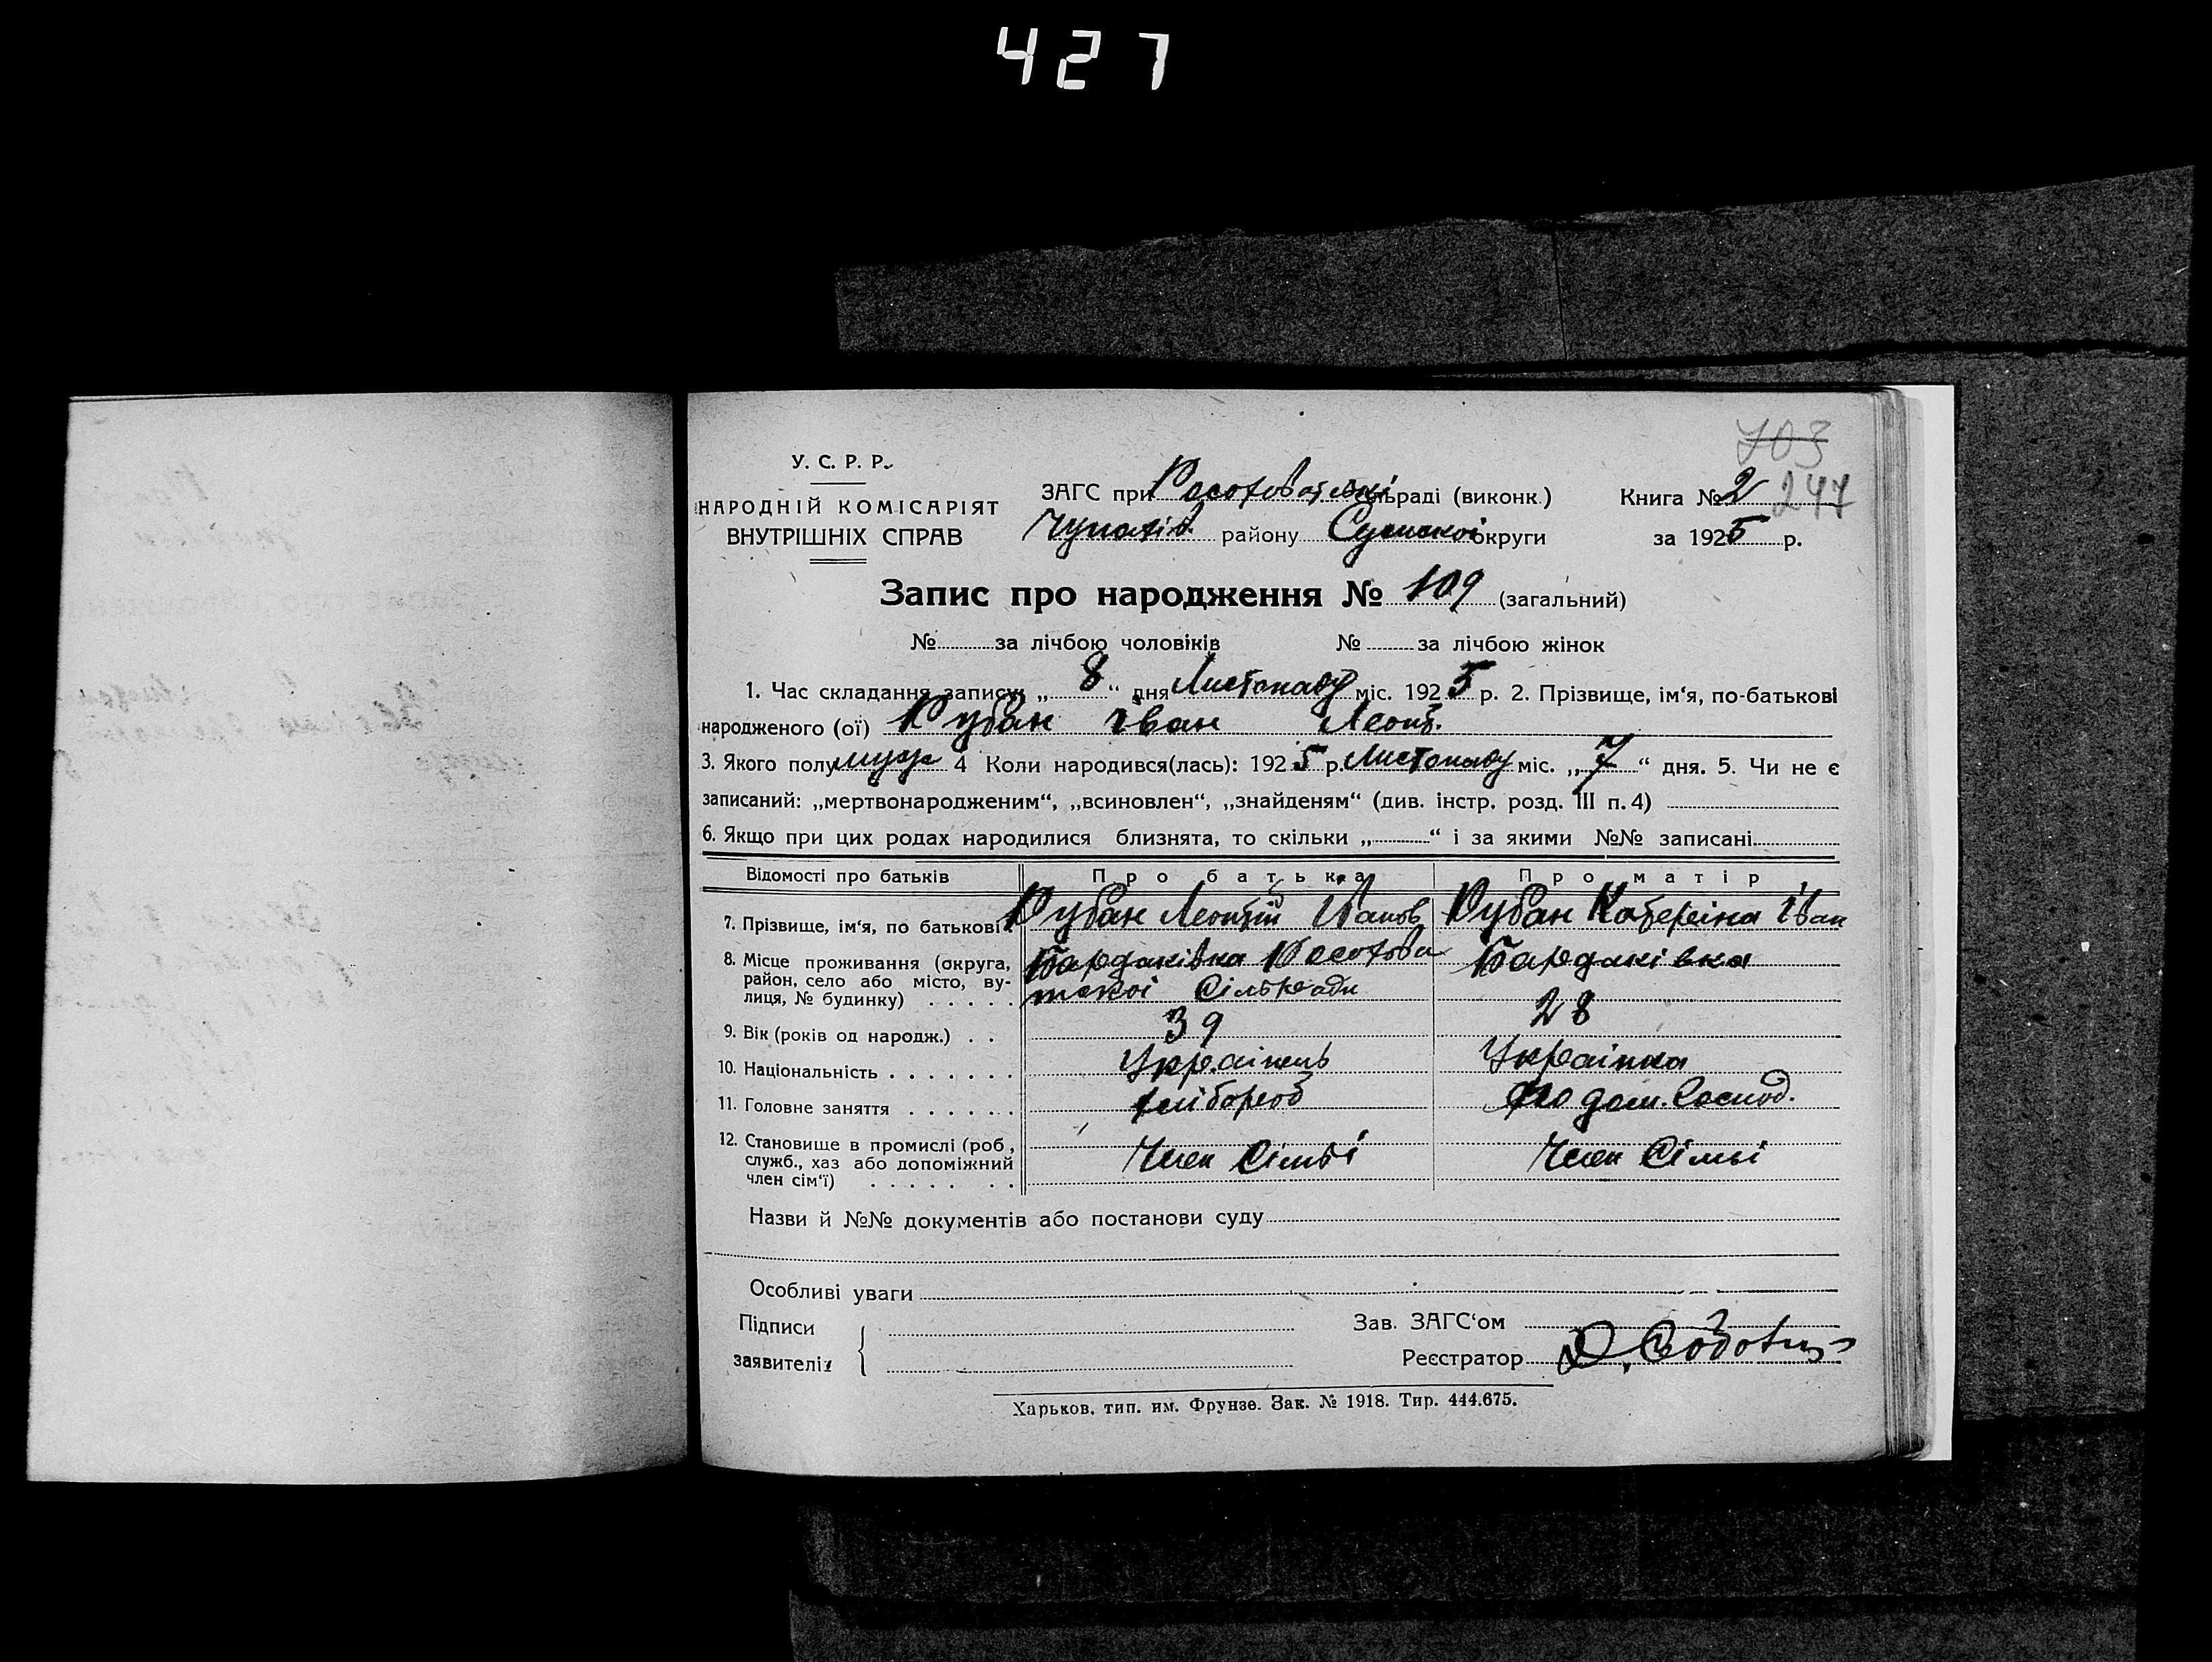 427
703
У. С. Р. Р.
НАРОДНІЙ КОМІСАРІЯТ
ВНУТРІШНІХ СПРАВ
ЗАГС при сільраді (виконк.) Книга № 2 247
Чупахів. району Сумской округи за 1925 р.
Запис про народження № 109 (загальний)
№ за лічбою чоловіків № за лічбою жінок
1. Час складання запису: „ 8 “ дня Листопаду міс. 1925 р. 2. Прізвище, ім'я, по-батькові
народженого (ої) Рубан Іван Леонт.
3. Якого полу муж 4 Коли народився(лась): 1925 р. Листопаду міс. „ 7 “ дня. 5. Чи не є
записаний: „мертвонародженим“, „всиновлен“, „знайденям“ (див. інстр. розд. III п. 4)
6. Якщо при цих родах народилися близнята, то скільки „ “ і за якими №№ записані
Відомості про батьків Про батька Про матір
7. Прізвище, ім'я, по батькові Рубан Леонтій Іванов Рубан Катеріна Іван
8. Місце проживання (округа, район, село або місто, вулиця, № будинку) Бардаківка Сільради Бардаківка
9. Вік (років од народж.) 39 28
10. Національність Українець Українка
11. Головне заняття хлібороб по дом. Господ.
12. Становище в промислі (роб, служб., хаз або допоміжний член сім'ї) Член Сімьї Член Сімьї
Назви й №№ документів або постанови суду
Особливі уваги
Підписи
заявителів
Зав. ЗАГС'ом
Реєстратор
Харьков. тип. им. Фрунзе. Зак. № 1918. Тир. 444.675.